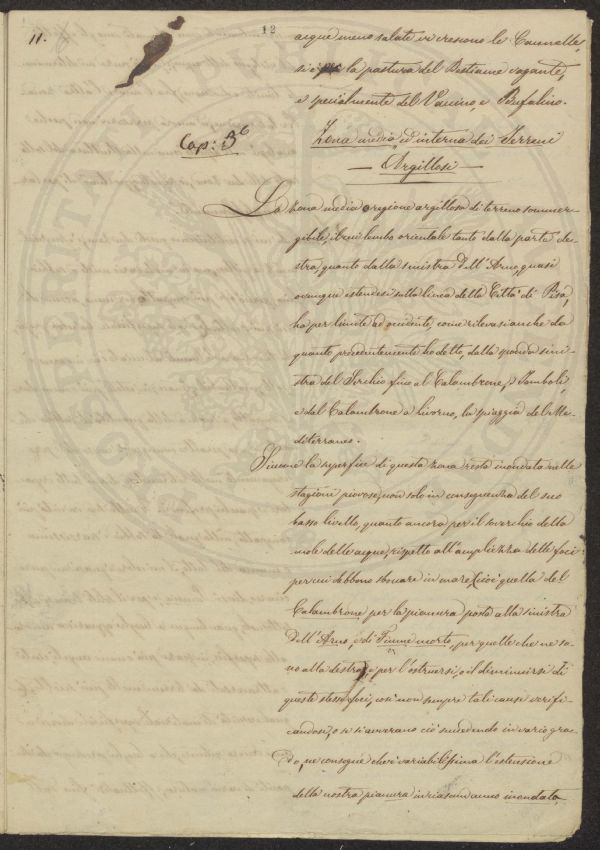 11.
12
acque meno salate vi crescono le Cannelle,
si è per la pastura del Bestiame vagante,
e specialmente del Vaccino, e Bufalino.
Cap: 3º
Zona media ed interna dei Terreni
— Argillosi —
La zona media o regione argillosa di terreno sommer-
gibile, il cui lembo orientale tanto dalla parte de-
stra, quanto dalla sinistra dell'Arno, quasi
ovunque estendesi sulla linea della Città di Pisa,
ha per limite ad occidente, come rilevasi anche da
quanto precedentemente ho detto, dalla sponda sini-
stra del Serchio fino al Calambrone, i Tomboli,
e dal Calambrone a Livorno, la spiaggia del Me-
diterraneo.
Siccome la superficie di questa zona resta inondata nelle
stagioni piovose, non solo in conseguenza del suo
basso livello, quanto ancora per il soverchio della
mole delle acque, rispetto all'ampiezza delle foci
per cui debbono sboccare in mare, cioè quella del
Calambrone per la pianura posta alla sinistra
dell'Arno, e di Fiume morto, per quelle che ne so-
no alla destra, o per l'ostruirsi, o il diminuirsi di
queste stesse foci, così non sempre tali cause verifi-
candosi, o se si avverano ciò succedendo in vario gra-
do, ne consegue che è variabilissima l'estensione
della nostra pianura in ciascun anno inondata,